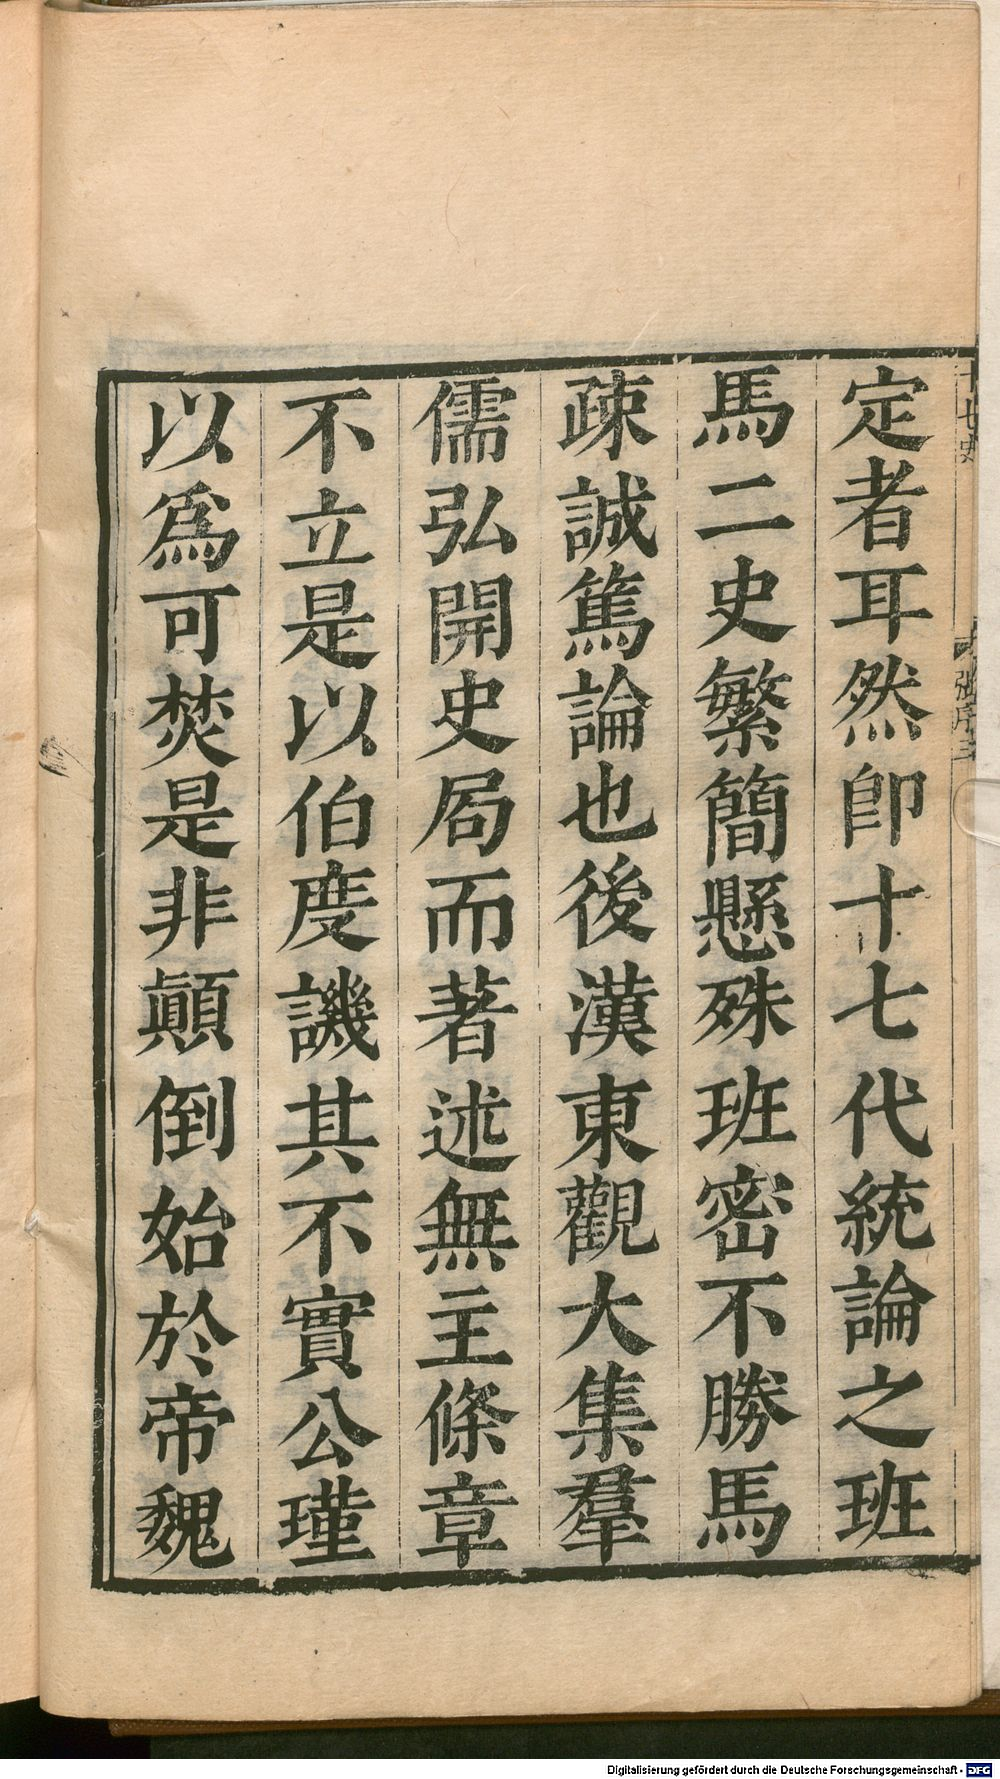 定者耳然卽十七代統論之班
馬二史繁簡懸殊班密不勝馬
疎誠篤論也後漢東觀大集羣
儒弘開史局而著述無主條章
不立是以伯度譏其不實公瑾
以爲可焚是非顚倒始於帝魏
十七史
張序三
Digitalisierung gefördert durch die Deutsche Forschungsgemeinschaft - DFG